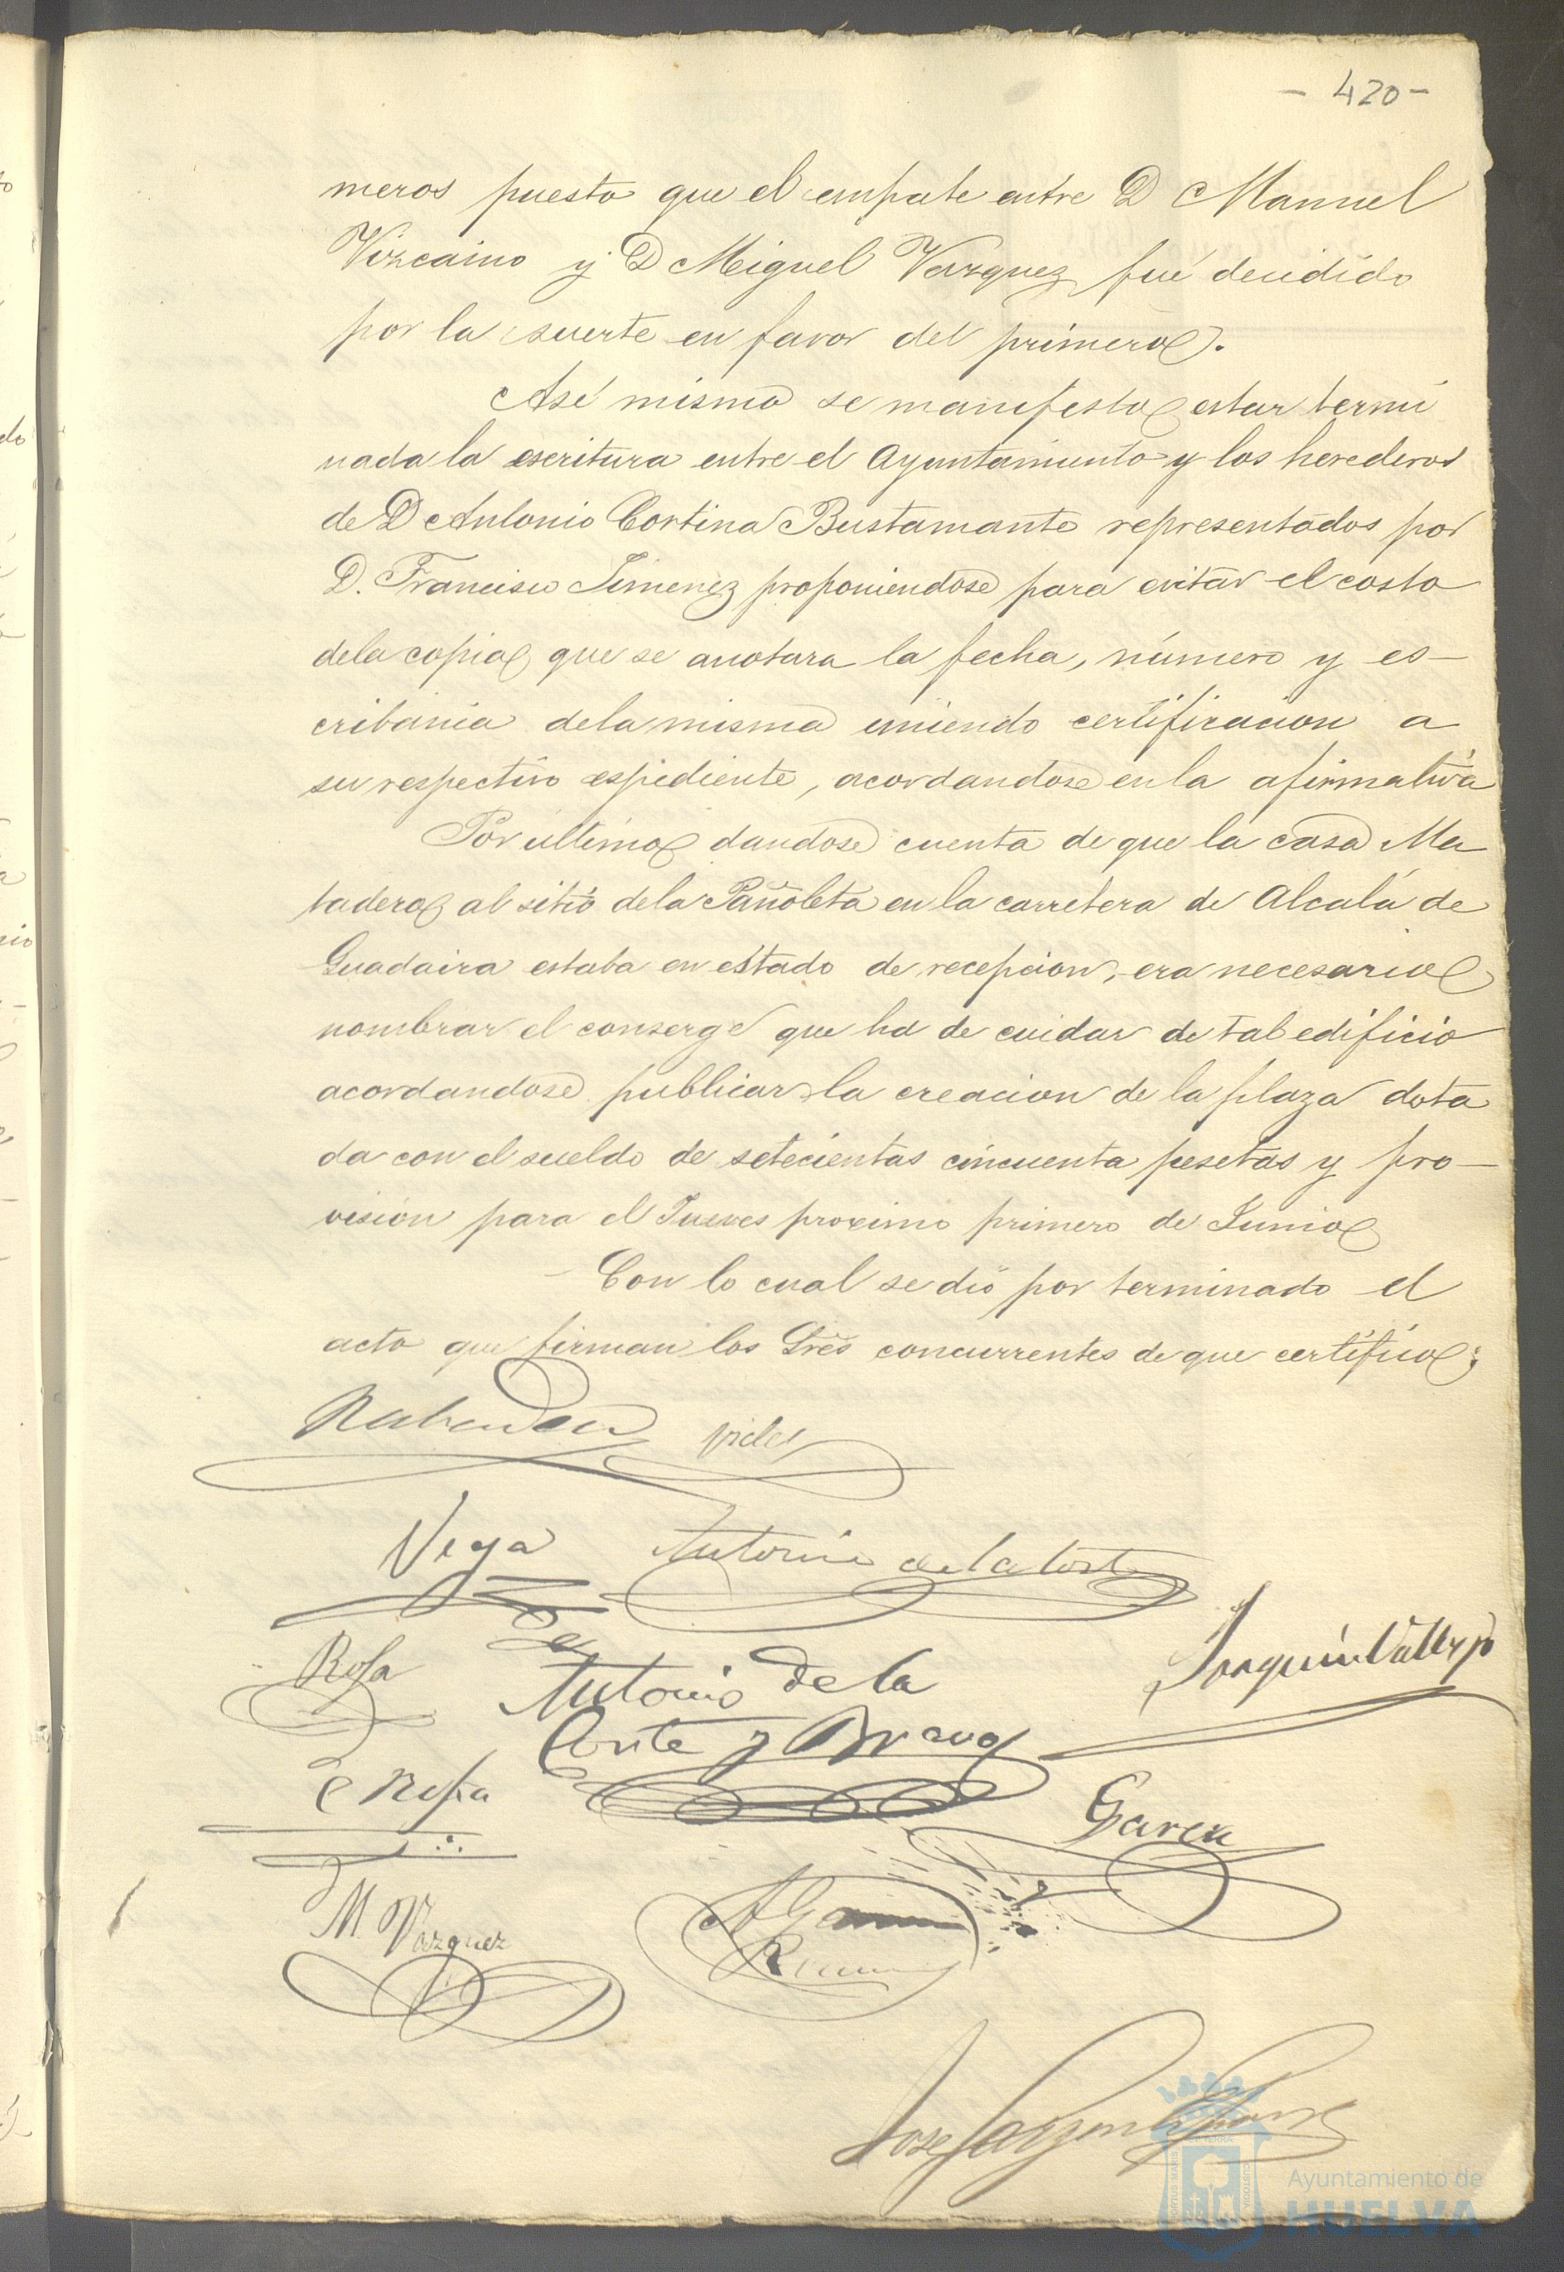 - 420 -
meros puesto que el empate entre D Manuel
Vizcaino y D Miguel Vazquez fué decidido
por la suerte en favor del primero.
Asi mismo se manifesto estar termi
nada la escritura entre el Ayuntamiento y los herederos
de D Antonio Cortina Bustamante representados por
D. Francisco Jimenez proponiendose para evitar el costo
dela copia que se anotara la fecha, número y es-
cribania dela misma uniendo certificacion a
su respectivo espediente, acordandose en la afirmativa
Por ultimo dandose cuenta de que la casa Ma
tadero al sitio dela Pañoleta en la carretera de Alcalá de
Guadaira estaba en estado de recepcion, era necesario
nombrar el conserge que ha de cuidar de tal edificio
acordandose publicar la creacion de la plaza dota
da con el sueldo de setecientas cincuenta pesetas y pro-
vision para el Jueves proximo primero de Junio
Con lo cual se dió por terminado el
acto que firman los Sres concurrentes de que certifico;
Vega Antonio de la Corte
Rofa Antonio de la Joaquin Vallejo
Corte y Bravo
Garcia
M. Vazquez
Jose
Ayuntamiento de
HUELVA